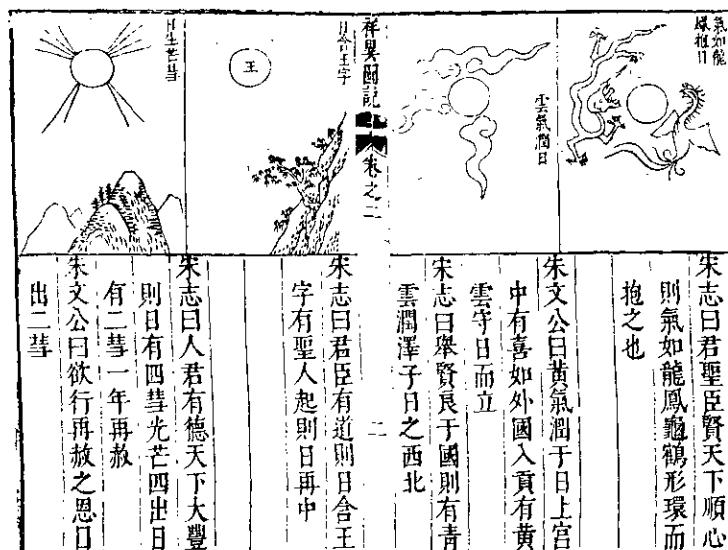 氣如龍
抱日
宋志曰君聖臣賢天下順心
則氣如龍鳳龜鶴形環而
抱之也
雲氣潤日
朱文公曰黃氣潤于日上宮
中有喜如外國入貢有黃
雲守日而立
宋志曰舉賢良于國則有青
雲潤澤于日之西北
祥異圖記
卷之二
二
日含王字
王
宋志曰君臣有道則日含王
字有聖人起則日再中
日生芒彗
宋志曰人君有德天下大豐
則日有四彗光芒四出日
有二彗一年再赦
朱文公曰欲行再赦之恩日
出二彗